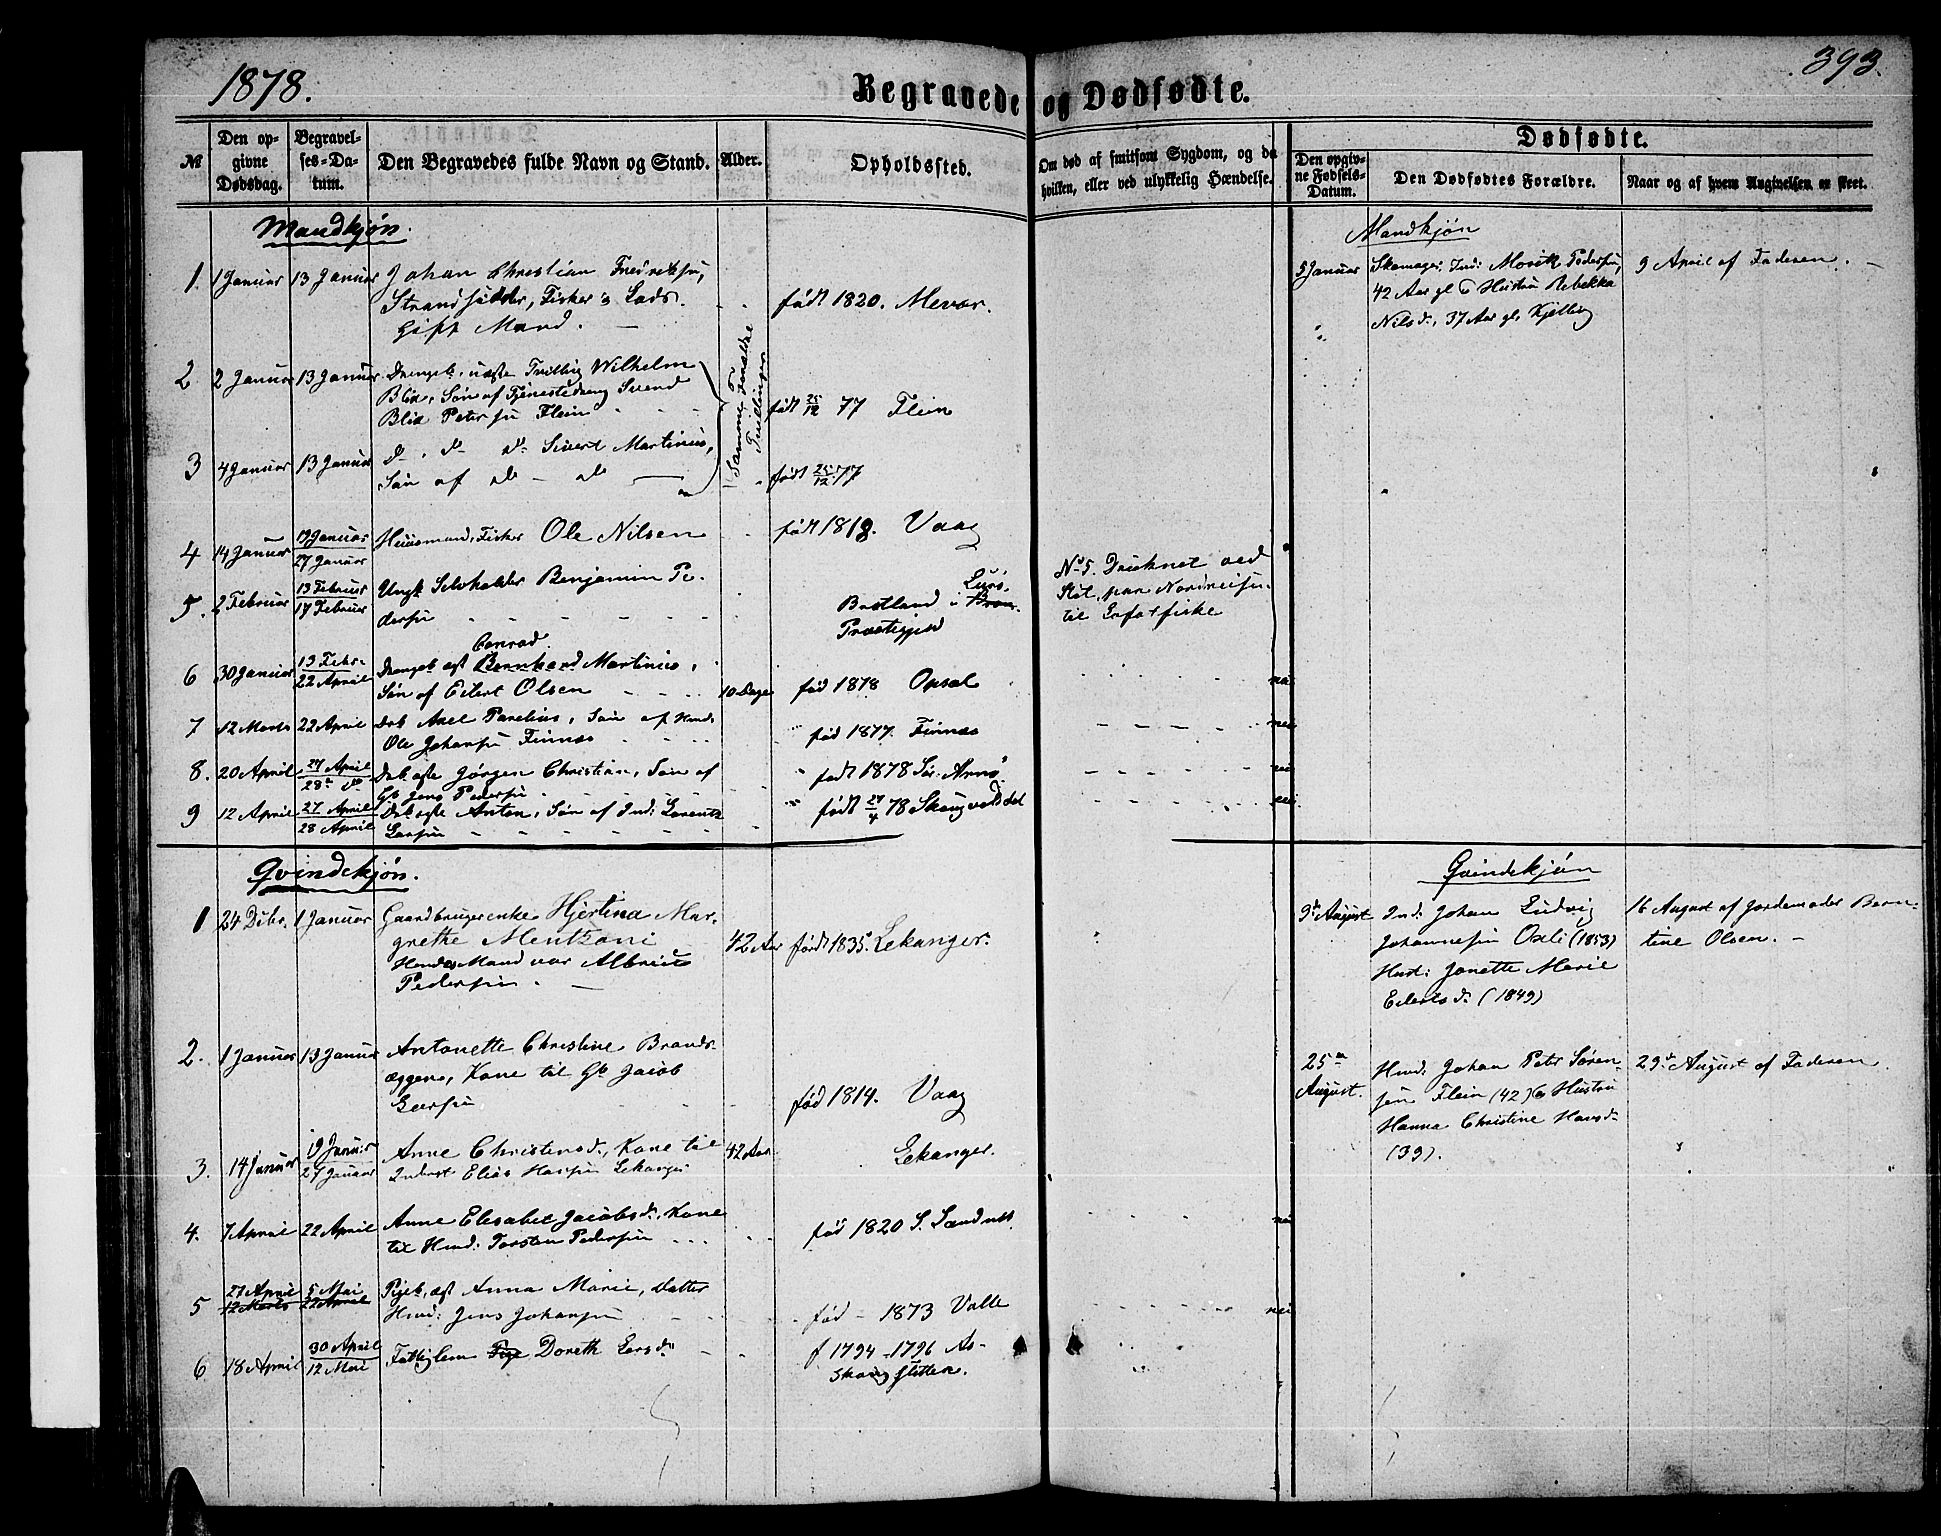 1878.
Begravede og Dødfødte.
393.
№
Den opgivne Dødsdag.
Begravelses-Datum.
Den Begravedes fulde Navn og Stand.
Alder.
Opholdssted.
Om død af smitsom Sygdom, og da hvilken, eller ved ulykkelig Hændelse.
Dødfødte.
Den opgivne Fødsels-Datum.
Den Dødfødtes Forældre.
Naar og af hvem Angivelsen er skeet.
Mandkjøn.
1. 1 Januar 13 Januar Johan Christian
født 1820. Mevær.
Gift Mand.
2 2 Januar 13 Januar Drengeb. uægte Tvilling Wilhelm
Blix, Søn af Tjenestedreng Svend
Blix Petersen Flein
født 25/12 77 Flein
Samme Forældre
Tvillinger
3 4 Januar 13 Januar do do do Sivert Martinus,
Søn af do - do
født 25/12 77
4 14 Januar 19 Januar
27 Januar
Huusmand, Fisker Ole Nilsen
født 1818. Vaag
5. 2 Februar 13 Februar
17 Februar
Ungk. Selvholder Benjamin Pe-
dersen
Lurø
Bratland i
Præstegjed
No 5. Druknet ved
til
6 30 Januar 13 Febr.
22 April
Conrad
Drengeb. ægt Bernhard Martinus,
Søn af Eilert Olsen
10 Dage
fød 1878 Opsal
nei
7 12 Marts 22 April Dreb Axel Parelius, Søn af Hmd:
Ole Johansen Finnæs
fød 1877. Finnæs
nei
8. 20 April 27 April
28de do
Dreb ægte Jørgen Christian, Søn af
Gb Jens Pedersen
født 1878 Sør. Arnø
nei
9 12 April 27 April
28 April
Dreb ægte Anton, Søn af Ind: Lorents
Larsen
født 24/4 78 Skaugvolddal
nei
Mandkjøn
5 Januar Skomager, Ind: Morik Pedersen,
42 Aar gl & Hustru Rebekka
Nilsd., 37 Aar gl, Kjelling
9 April af Faderen.
Qvindekjøn.
1 24 Dcbr. 1 Januar Gaardbrugerenke Hjertina Mar-
grethe Mentzoni
Hendes Mand var Albrict
Pedersen.
42 Aar født 1835. Lekanger.
2. 1 Januar 13 Januar Antonette Christine Brands-
æggene, Kone til Gb Jacob
Larsen
fød 1814. Vaag
3. 14 Januar 19 Januar
27 Januar
Anne Christensd., Kone til
Inderst Elias Hansen Lekanger
42 Aar
Lekanger.
4. 7 April 22 April Anne Elisabet Jacobsd., Kone
til Hmd: Torsten Pedersen
fød 1820 S. Sandnes
nei
5 27 April 5 Mai
12 Marts 22 April
Pigeb, ægt Anna Marie, Datter
Hmd: Jens Johansen
fød - 1873 Valle
nei
6. 18 April 30 April
12 Mai
Fattiglem Pige Doreth Larsd.
f 1794-1796 As-
Skaug
Qvindekjøn
9de August Ind: Johan Ludvig
Johannesen Oxli (1853)
Hust: Jonette Marie
Eilertsd. (1849)
16 August af Jordemoder Bern-
tine Olsen.
25de
August.
Hmd: Johan Peter Søren-
sen Flein (42) & Hustru
Hanna Christine Hansd.
(39).
29de August af Faderen